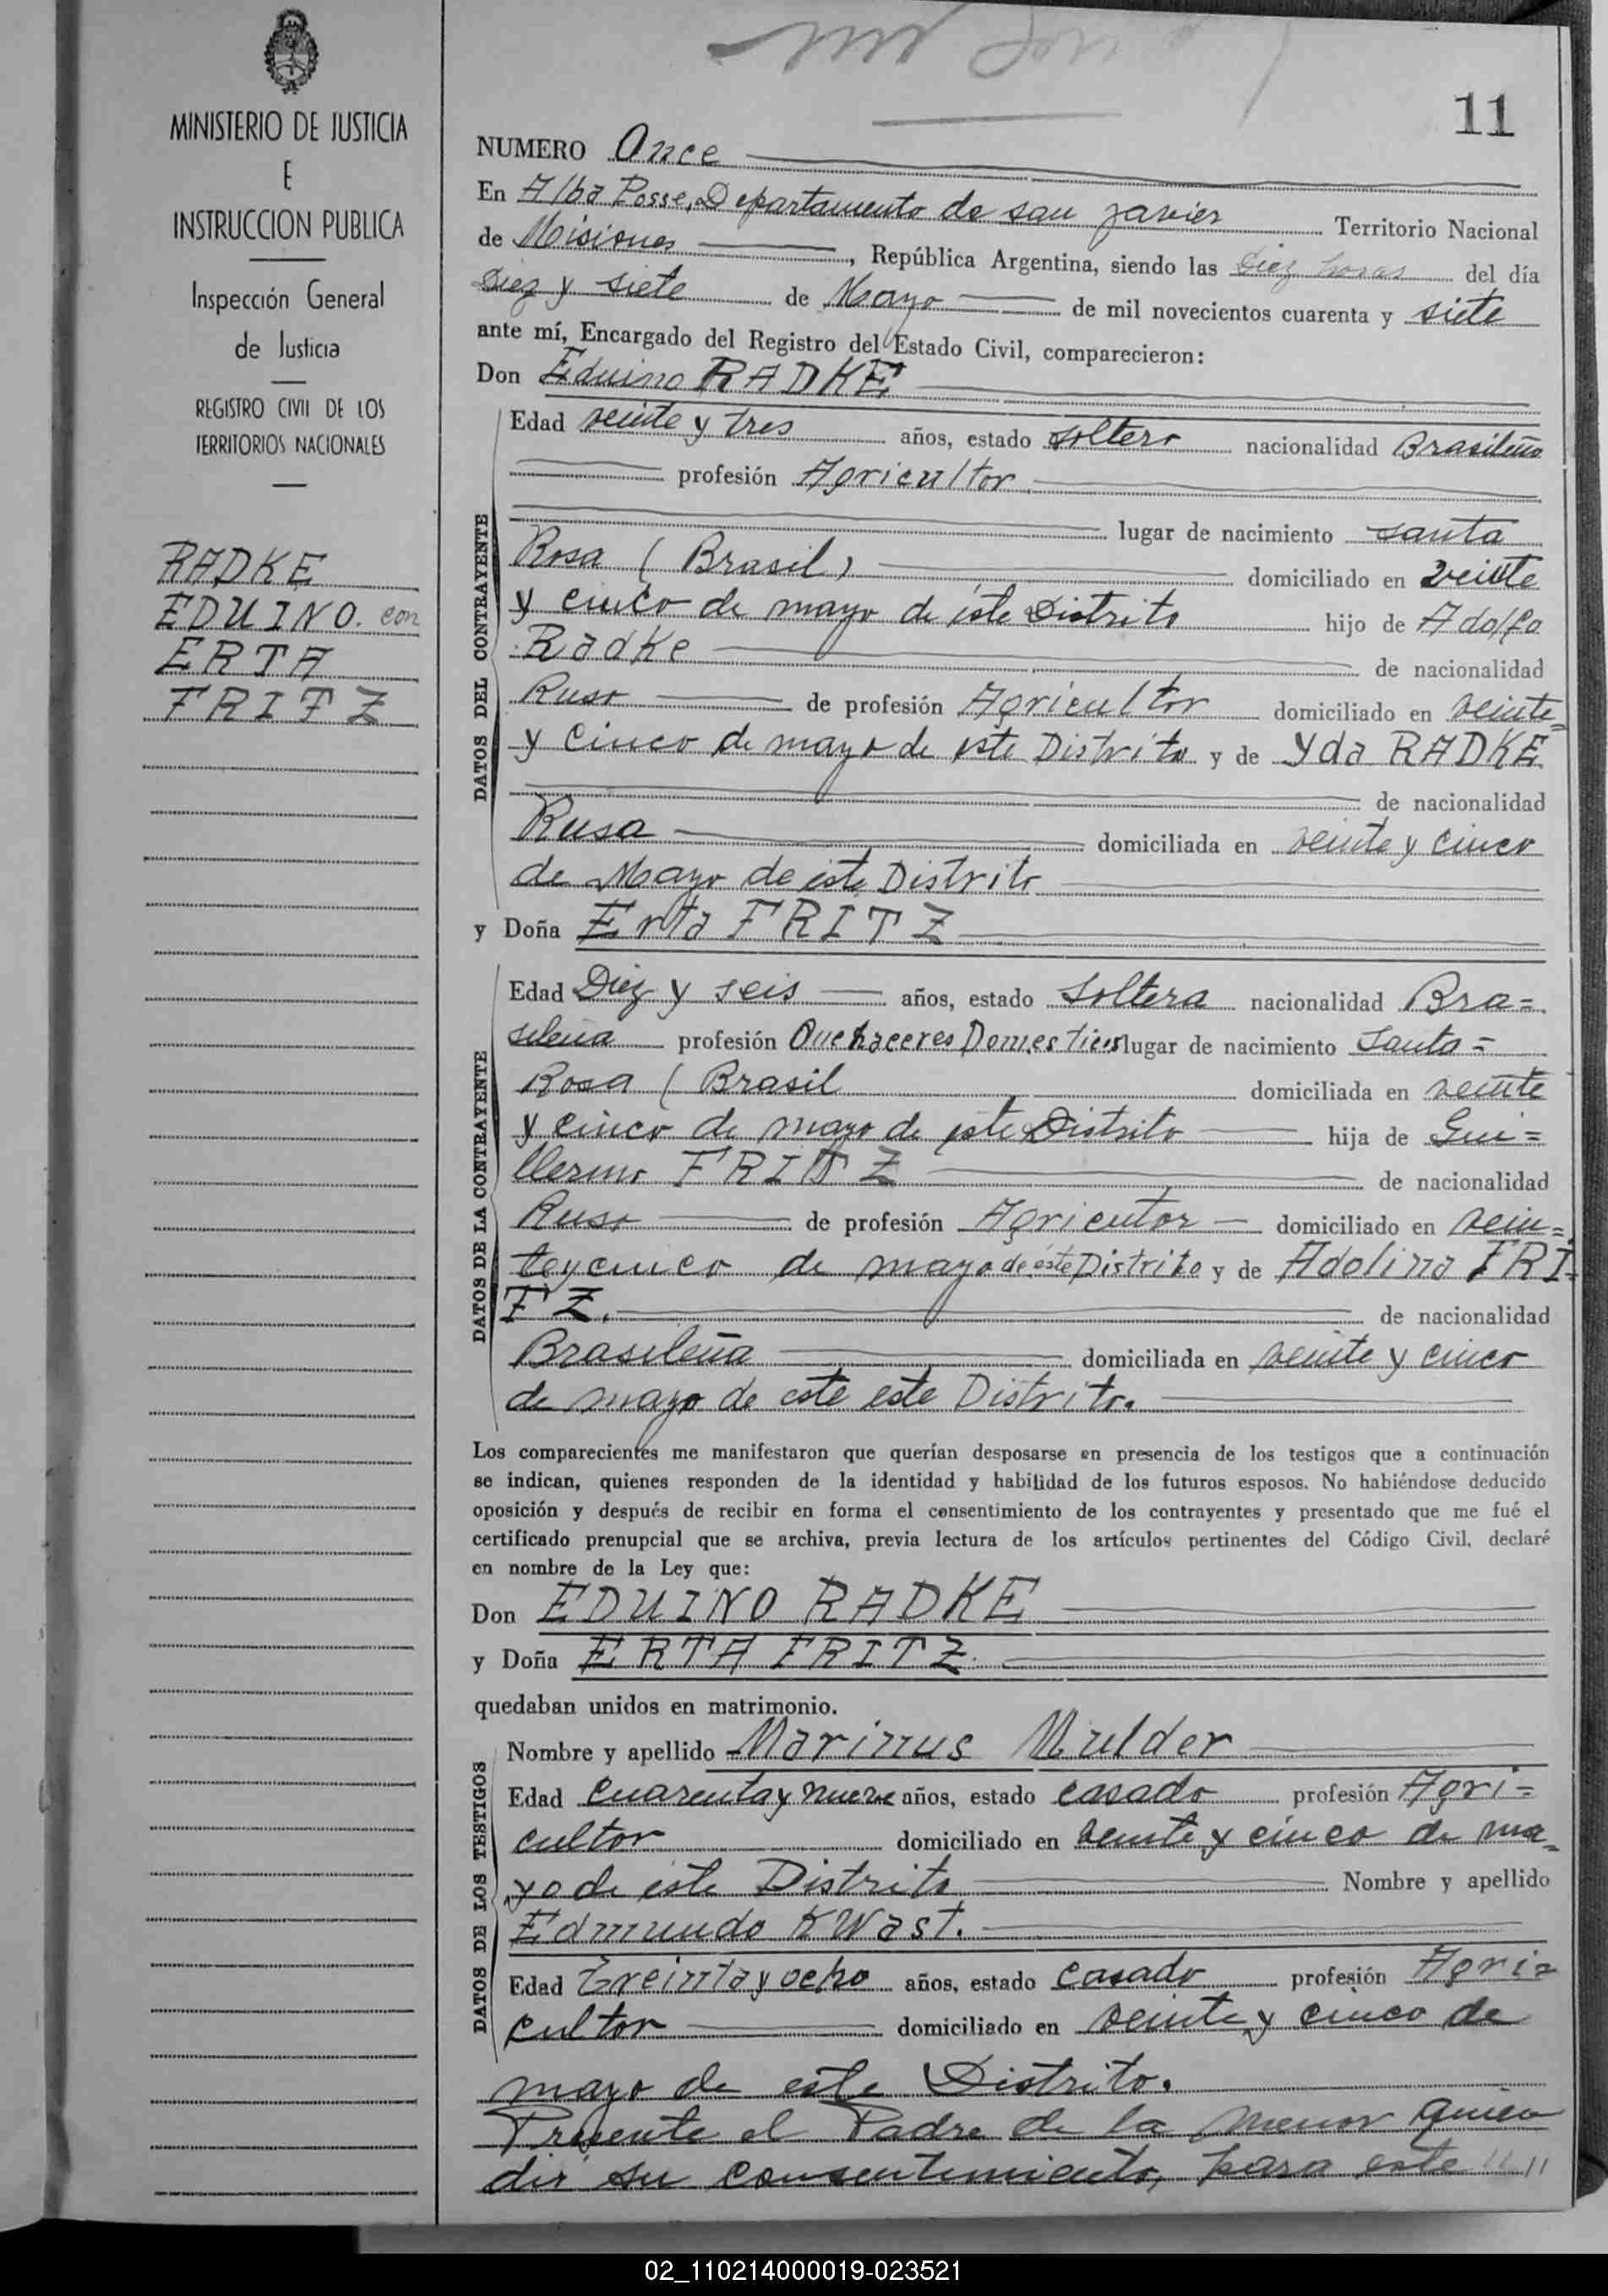 11
MINISTERIO DE JUSTICIA
E
INSTRUCCION PUBLICA
Inspección General
de Justicia
REGISTRO CIVIL DE LOS
TERRITORIOS NACIONALES
RADKE
EDUINO. con
ERTA
FRITZ
NUMERO Once
En Alba Posse, Departamento de san javier Territorio Nacional
de Misiones, República Argentina, siendo las Diez horas del día
Diez y siete de Mayo de mil novecientos cuarenta y siete
ante mí, Encargado del Registro del Estado Civil, comparecieron:
Don Eduino RADKE
DATOS DEL CONTRAYENTE
Edad veinte y tres años, estado soltero nacionalidad Brasileño
profesión Agricultor
lugar de nacimiento santa
Rosa (Brasil) domiciliado en veinte
y cinco de mayo de este Distrito hijo de Adolfo
Radke de nacionalidad
Ruso de profesión Agricultor domiciliado en veinte=
y cinco de mayo de este Distrito y de Yda RADKE
de nacionalidad
Rusa domiciliada en veinte y cinco
de Mayo de este Distrito
y Doña Erta FRITZ
DATOS DE LA CONTRAYENTE
Edad Diez y seis años, estado soltera nacionalidad Bra=
sileña profesión Quehaceres Domesticos lugar de nacimiento Santa=
Rosa (Brasil domiciliada en veinte
y cinco de mayo de este Distrito hija de Gui=
llermo FRITZ de nacionalidad
Ruso de profesión Agricutor domiciliado en vein=
teycinco de mayo de este Distrito y de Adolina FRI=
TZ. de nacionalidad
Brasileña domiciliada en veinte y cinco
de mayo de este este Distrito.
Los comparecientes me manifestaron que querían desposarse en presencia de los testigos que a continuación
se indican, quienes responden de la identidad y habilidad de los futuros esposos. No habiéndose deducido
oposición y después de recibir en forma el consentimiento de los contrayentes y presentado que me fué el
certificado prenupcial que se archiva, previa lectura de los artículos pertinentes del Código Civil, declaré
en nombre de la Ley que:
Don EDUINO RADKE
y Doña ERTA FRITZ.
quedaban unidos en matrimonio.
DATOS DE LOS TESTIGOS
Nombre y apellido Marinus Mulder
Edad cuarenta y nueve años, estado casado profesión Agri=
cultor domiciliado en veinte y cinco de ma=
yo de este Distrito Nombre y apellido
Edmundo KWast.
Edad Treinta y ocho años, estado casado profesión Agri=
cultor domiciliado en veinte y cinco de
mayo de este Distrito.
Presente el Padre de la menor quien
dir su consentimiento, para este // //
02_110214000019-023521